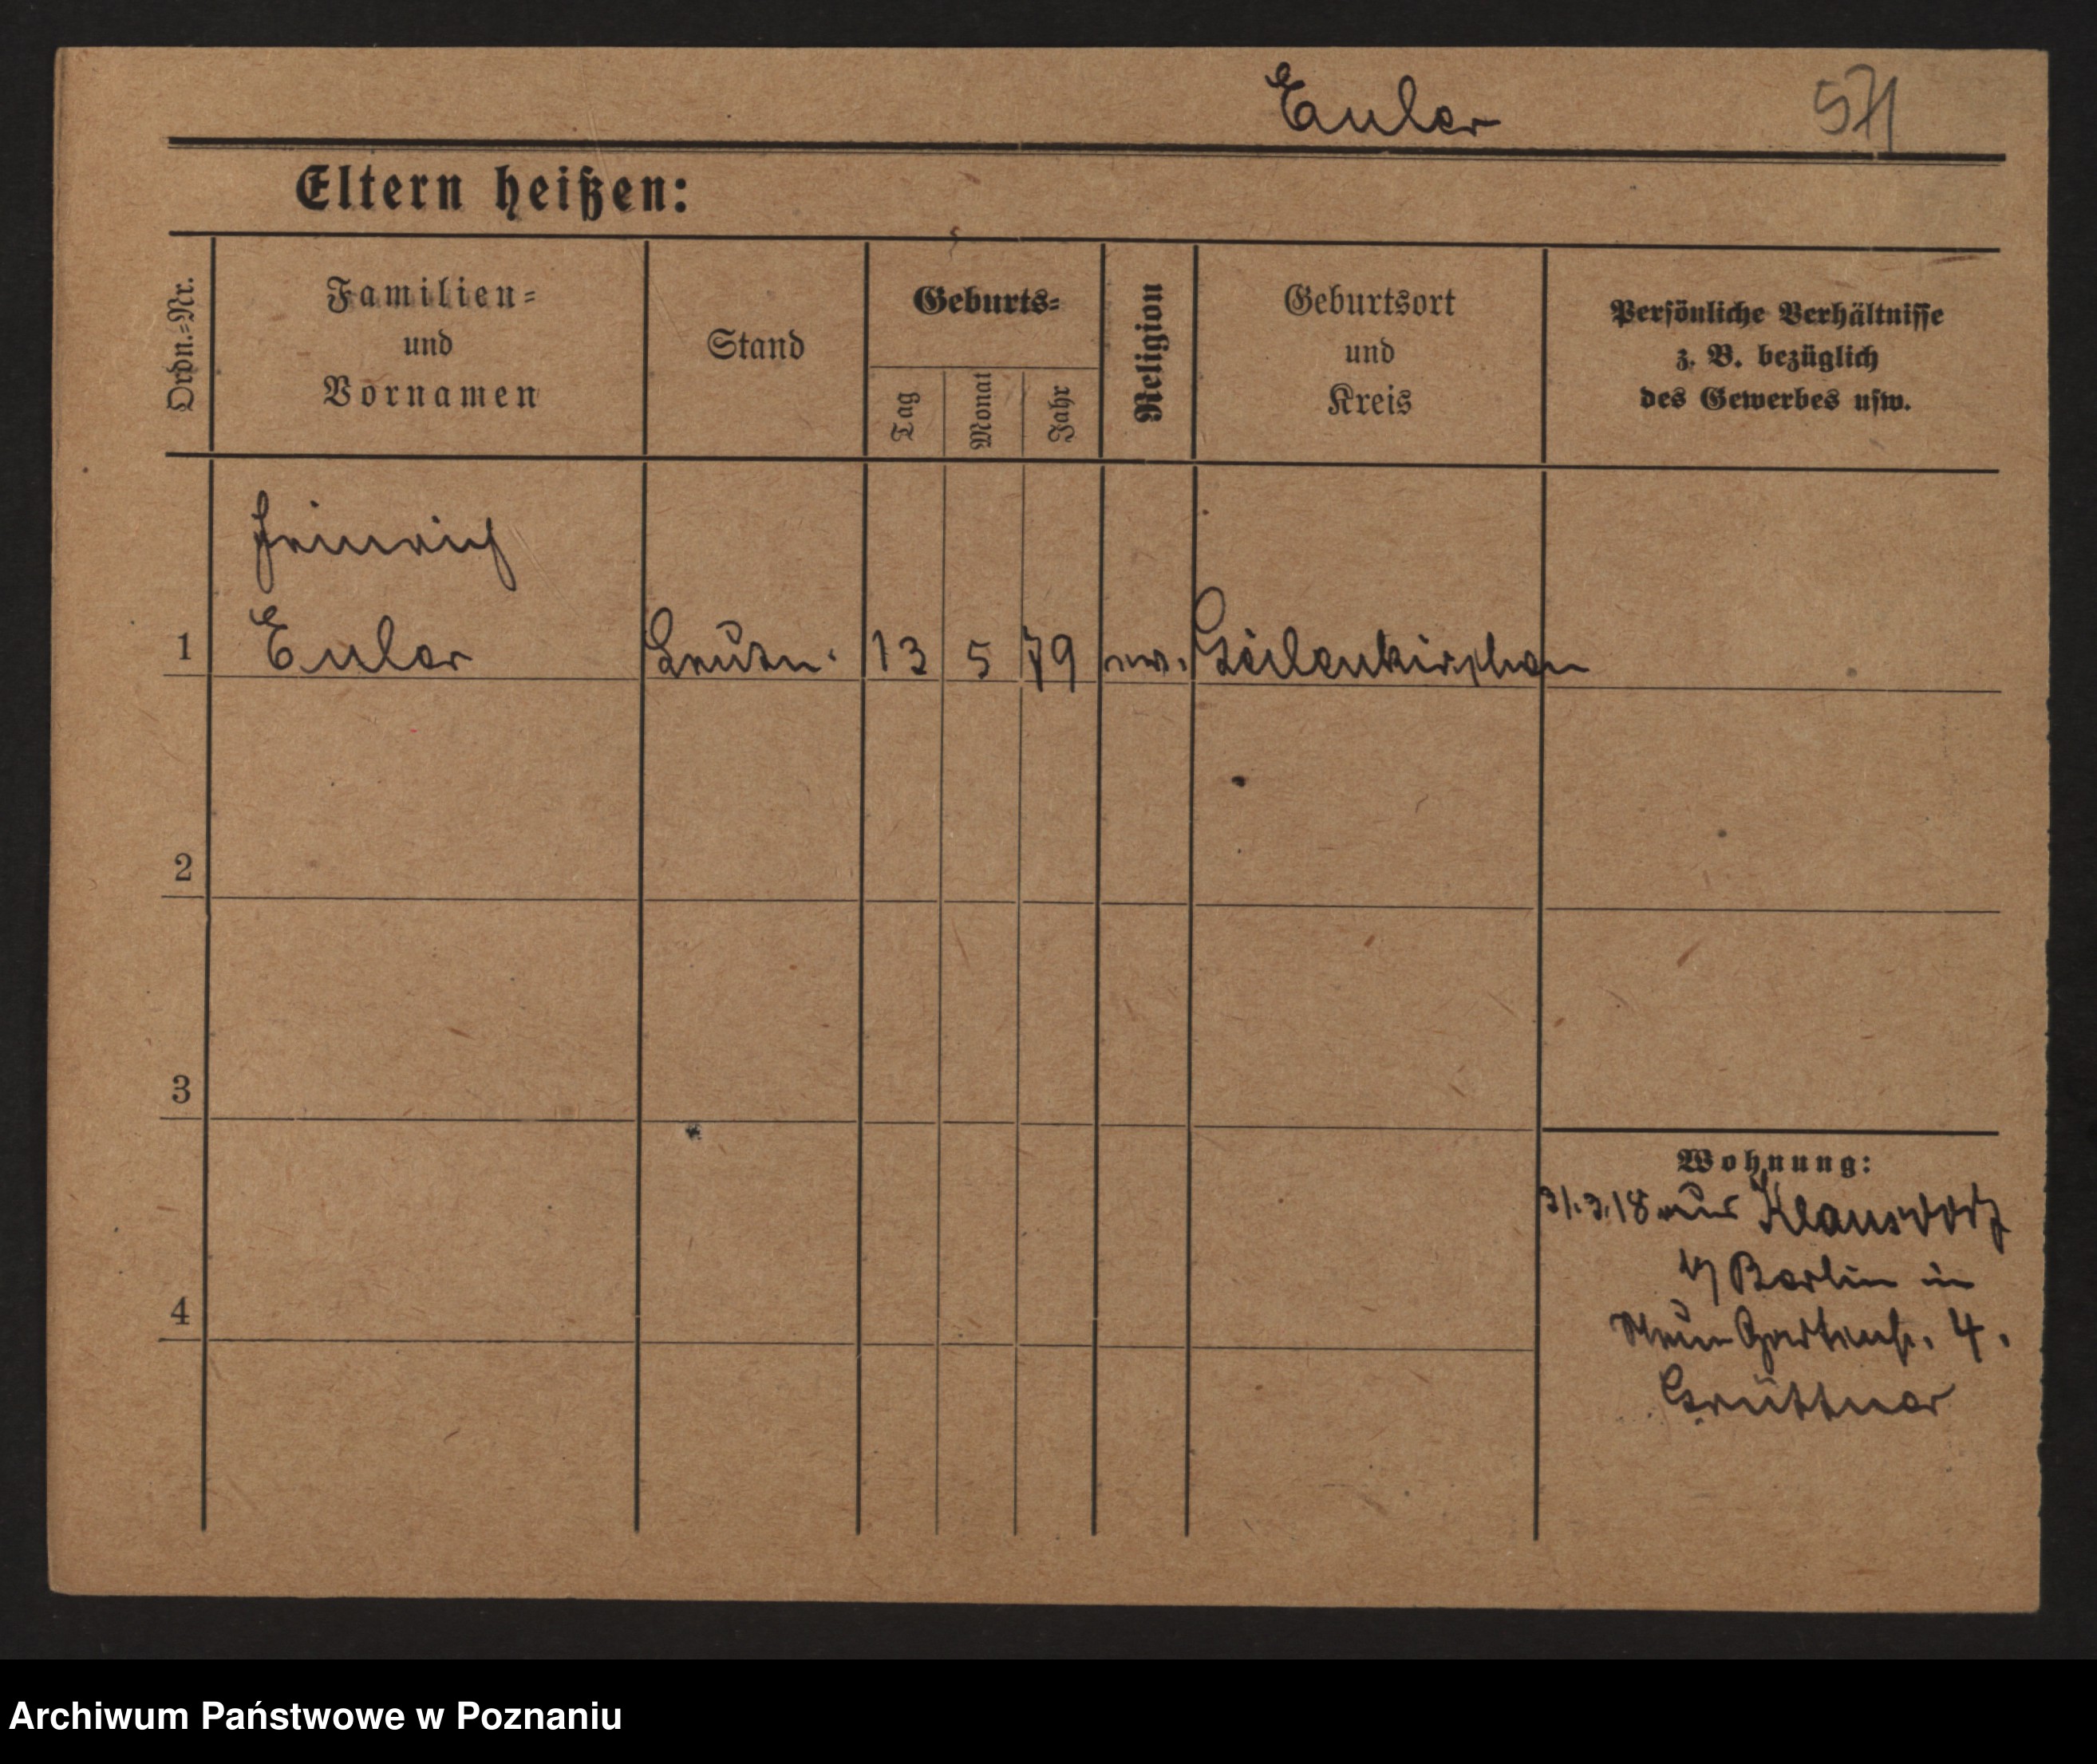 Euler 571
Eltern heißen:
Ordn.=Nr.
Familien=
und
Vornamen
Stand
Geburts=
Tag
Monat
Jahr
Religion
Geburtsort
und
Kreis
Persönliche Verhältnisse
z. B. bezüglich
des Gewerbes usw.
Heinrich
1 Euler Leutn. 13 5 79 ev. Geilenkirchen
2
3
4
Wohnung:
31.3.18 aus Klausdorf
b/ Berlin in
Gartenstr. 4.
Grüttner
Archiwum Państwowe w Poznaniu